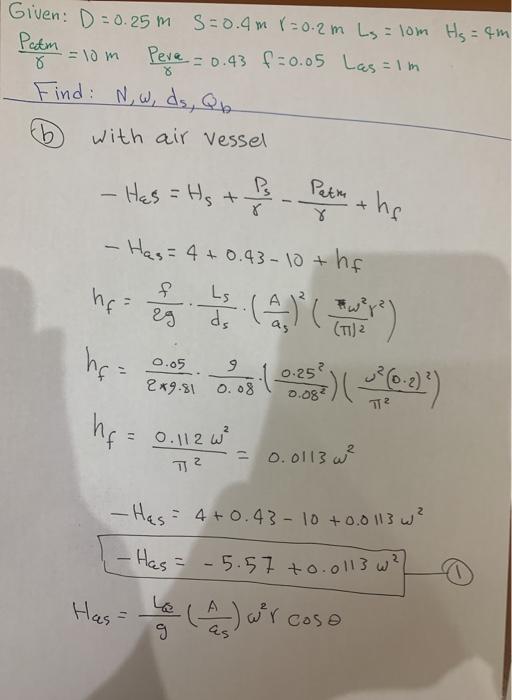 Given: D = 0.25 m S = 0.4 m r = 0.2 m Ls = 10m Hs = 4m
Patm/γ = 10 m Peva/γ = 0.43 f = 0.05 Las = 1 m
Find: N, w, ds, Qb
(b) with air vessel
- Has = Hs + Ps/γ - Patm/γ + hf
- Has = 4 + 0.43 - 10 + hf
hf = f/2g · Ls/ds · (A/as)² (ω²r²/(π)²)
hf = 0.05/2*9.81 · 9/0.08 · (0.25²/0.08²)(ω²(0.2)²/π²)
hf = 0.112 ω²/π² = 0.0113 ω²
- Has = 4 + 0.43 - 10 + 0.0113 ω²
- Has = - 5.57 + 0.0113 ω² (1)
Has = La/g (A/as) ω²r cosθ